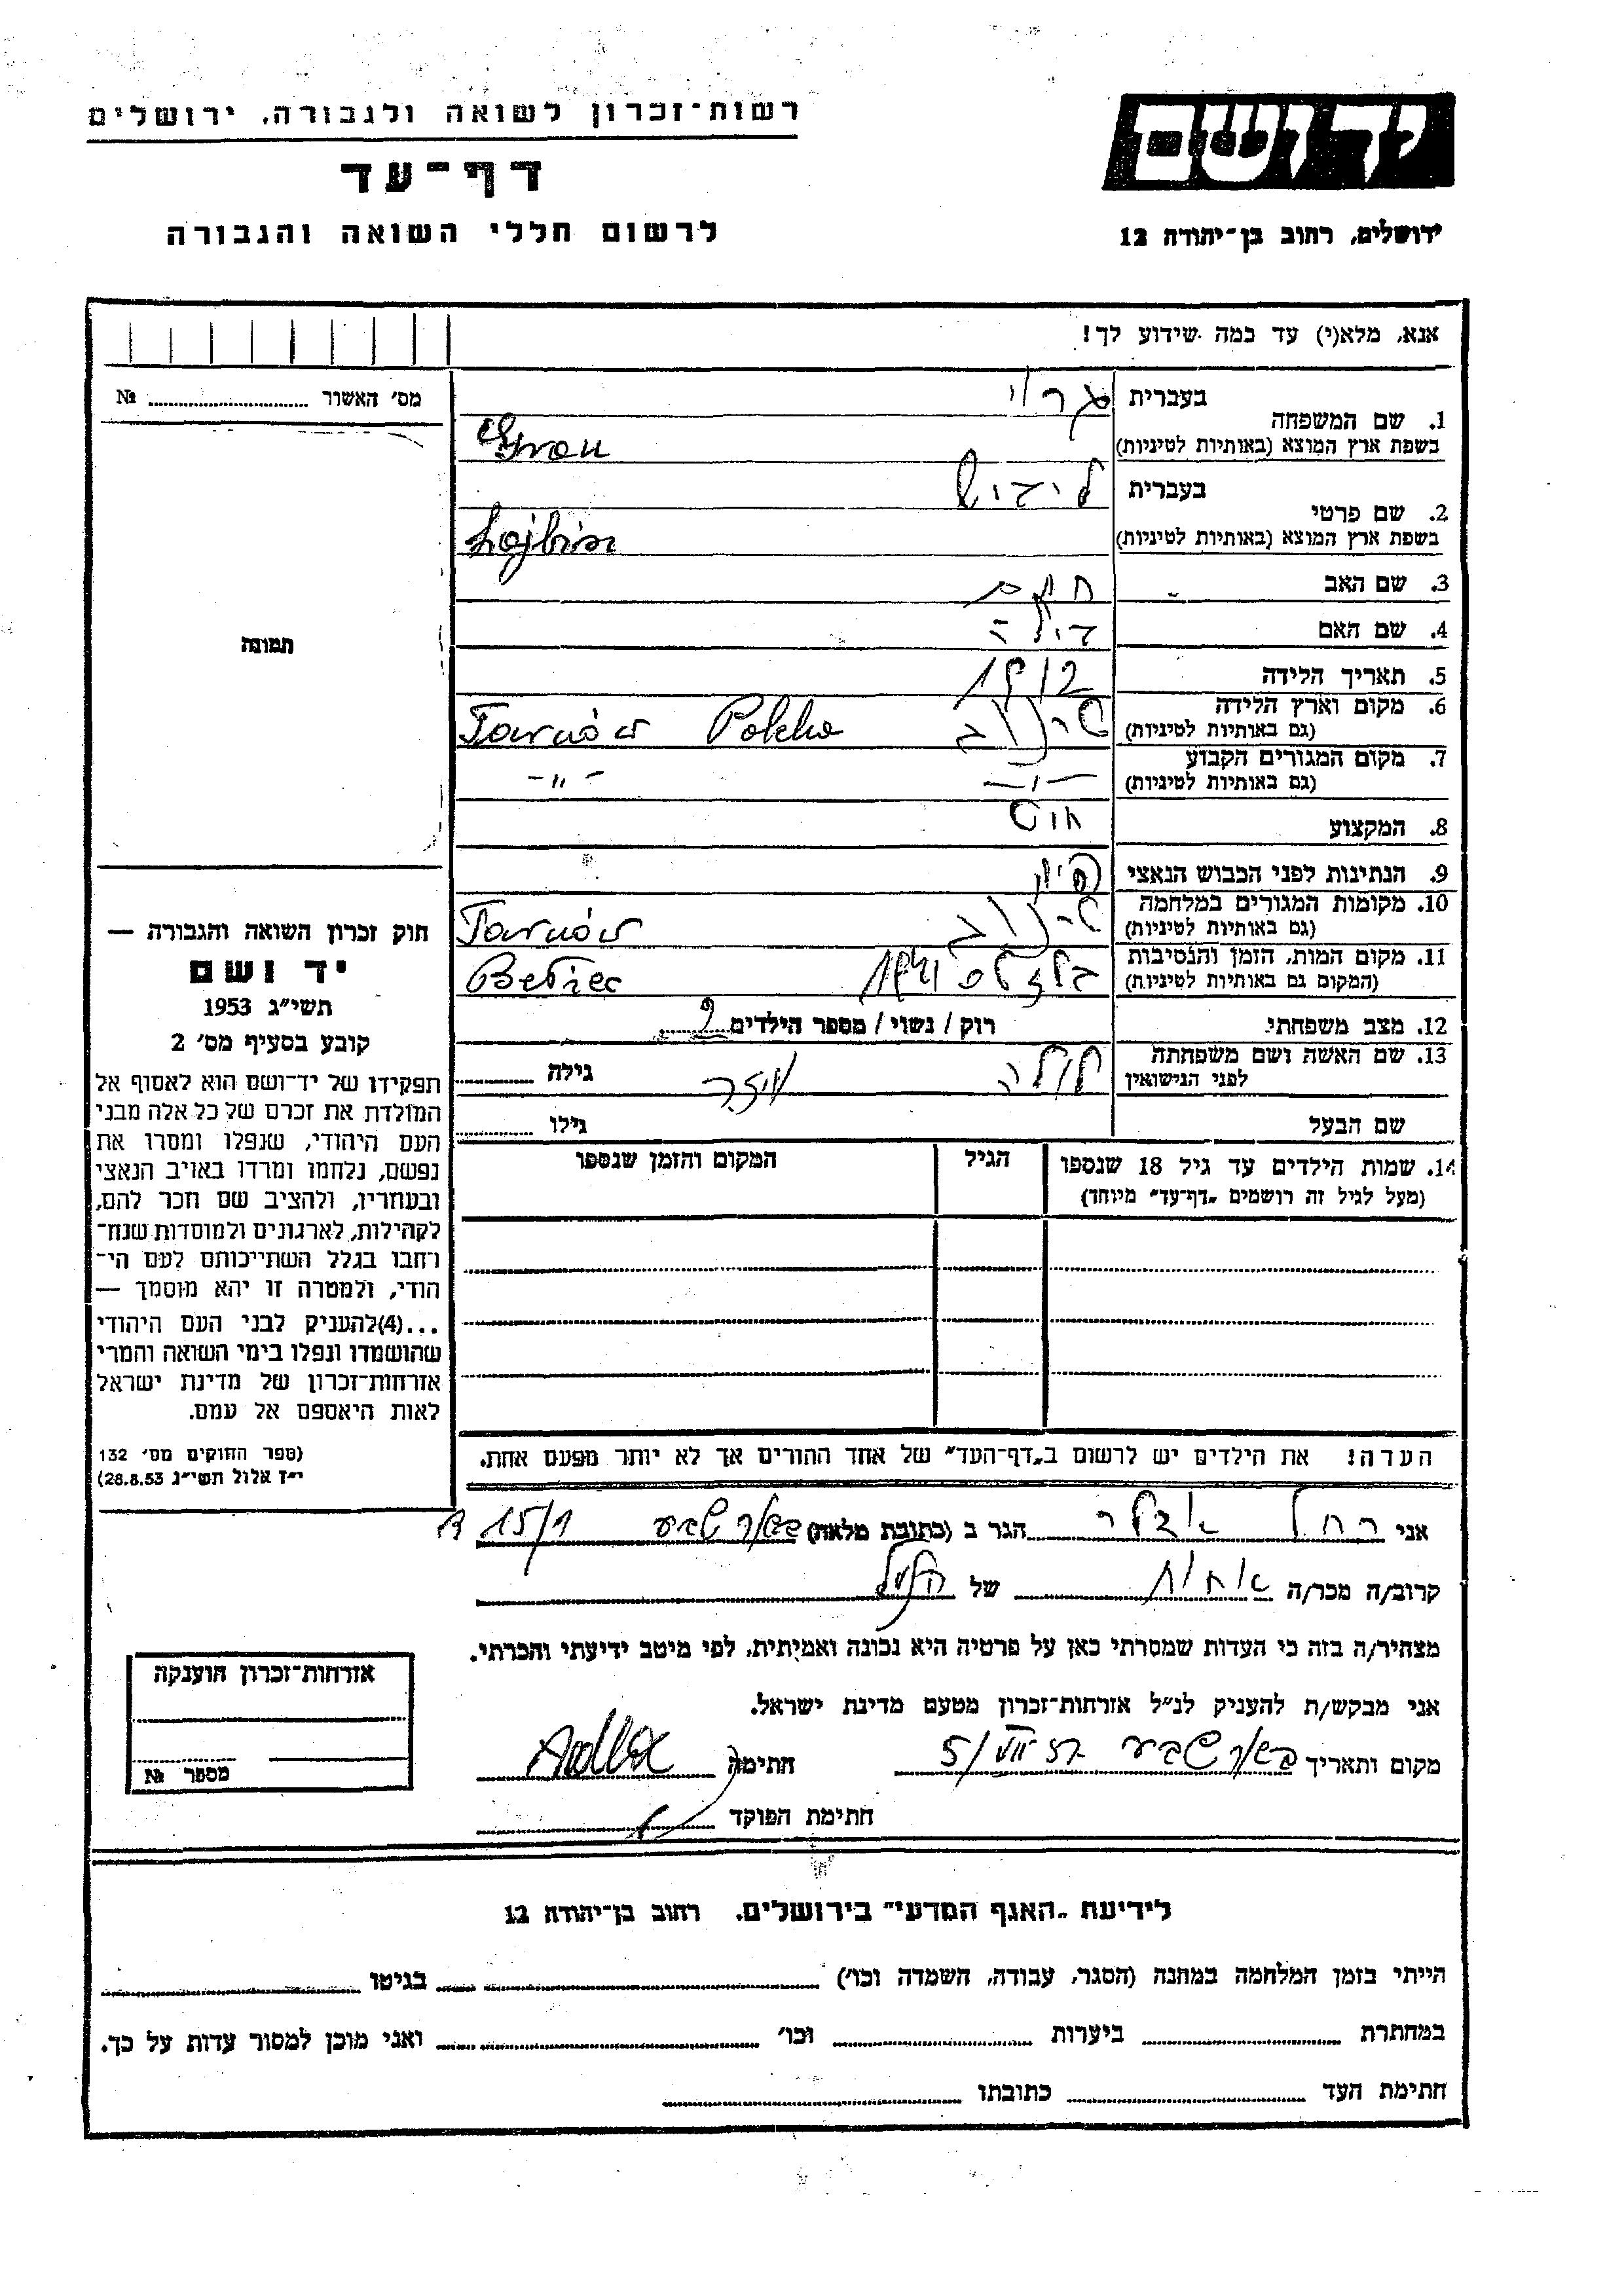 רשות־זכרון לשואה ולגבורה, ירושלים
יד ושם
דף־עד
לרשום חללי השואה והגבורה
ירושלים, רחוב בן־יהודה 12
אנא, מלא(י) עד כמה שידוע לך!
מס׳ האשור № ........
1. שם המשפחה
בעברית
בשפת ארץ המוצא (באותיות לטיניות)
2. שם פרטי
בעברית
בשפת ארץ המוצא (באותיות לטיניות)
3. שם האב חיים
4. שם האם
5. תאריך הלידה 1912
6. מקום וארץ הלידה טרנוב Tarnów Polska
(גם באותיות לטיניות)
7. מקום המגורים הקבוע -״- -״-
(גם באותיות לטיניות)
8. המקצוע
9. הנתינות לפני הכבוש הנאצי פולין
10. מקומות המגורים במלחמה טרנוב Tarnów
(גם באותיות לטיניות)
11. מקום המות, הזמן והנסיבות Bełżec
(המקום גם באותיות לטיניות)
12. מצב משפחתי רוק / נשוי / מספר הילדים 2
13. שם האשה ושם משפחתה גילה ........
לפני הנישואין
שם הבעל גילו ........
14. שמות הילדים עד גיל 18 שנספו הגיל המקום והזמן שנספו
(מעל לגיל זה רושמים „דף־עד״ מיוחד)
הערה: את הילדים יש לרשום ב„דף־העד״ של אחד ההורים אך לא יותר מפעם אחת.
תמונה
חוק זכרון השואה והגבורה —
יד ושם
תשי״ג 1953
קובע בסעיף מס׳ 2
תפקידו של יד־ושם הוא לאסוף אל
המולדת את זכרם של כל אלה מבני
העם היהודי, שנפלו ומסרו את
נפשם, נלחמו ומרדו באויב הנאצי
ובעוזריו, ולהציב שם וזכר להם,
לקהילות, לארגונים ולמוסדות שנח־
רחבו בגלל השתייכותם לעם הי־
הודי, ולמטרה זו יהא מוסמך —
...(4)להעניק לבני העם היהודי
שהושמדו ונפלו בימי השואה והמרי
אזרחות־זכרון של מדינת ישראל
לאות היאספם אל עמם.
(ספר החוקים מס׳ 132
י״ז אלול תשי״ג 28.8.53)
אני רחל אדלר הגר ב (כתובת מלאה) באר שבע
קרוב/ה מכר/ה אחות של הנ״ל
מצהיר/ה בזה כי העדות שמסרתי כאן על פרטיה היא נכונה ואמיתית, לפי מיטב ידיעתי והכרתי.
אני מבקש/ת להעניק לנ״ל אזרחות־זכרון מטעם מדינת ישראל.
מקום ותאריך באר שבע חתימה Adler
חתימת הפוקד
אזרחות־זכרון הוענקה
מספר №
לידיעת „האגף המדעי״ בירושלים, רחוב בן־יהודה 12
הייתי בזמן המלחמה במחנה (הסגר, עבודה, השמדה וכו׳) ........ בגיטו ........
במחתרת ........ ביערות ........ וכו׳ ........ ואני מוכן למסור עדות על כך.
חתימת העד ........ כתובתו ........